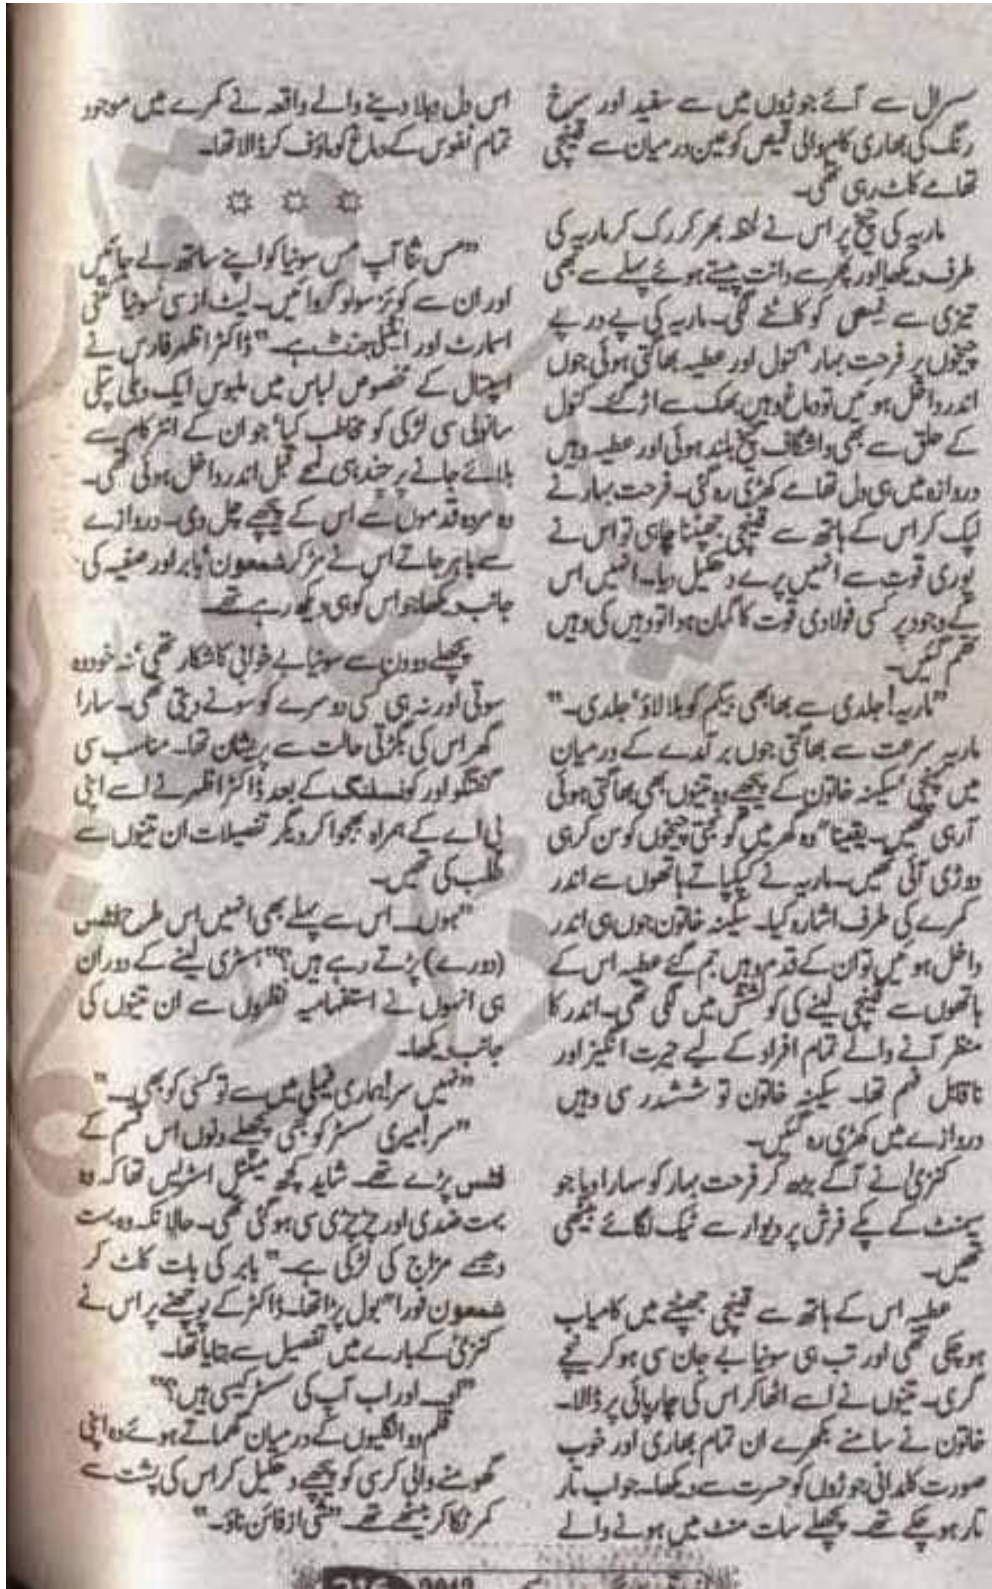 سسرال سے آئے جوڑوں میں سے سفید اور سرخ
رنگ کی بھاری کام والی قمیص کو عین درمیان سے قینچی
تھامے کاٹ رہی تھی۔
ماریہ کی چیخ پر اس نے لحظہ بھر کر رک کر ماریہ کی
طرف دیکھا اور پھر سے دانت پیستے ہوئے پہلے سے بھی
تیزی سے قمیص کو کاٹنے لگی۔ ماریہ کی پے در پے
چیخوں پر فرحت بہار، کنول اور عطیہ بھاگتی ہوئی جوں
اندر داخل ہوئیں تو دماغ وہیں بھک سے اڑ گئے۔ کنول
کے حلق سے بھی دلشگاف چیخ بلند ہوئی اور عطیہ وہیں
دروازہ میں ہی دل تھامے کھڑی رہ گئی۔ فرحت بہار نے
لپک کر اس کے ہاتھ سے قینچی جھپٹنا چاہی تو اس نے
پوری قوت سے انہیں پرے دھکیل دیا۔ انہیں اس
کے وجود پر کسی فولادی قوت کا گمان ہوا تو وہیں کی وہیں
تھم گئیں۔
"ماریہ! جلدی سے بھابھی بیگم کو بلا لاؤ، جلدی۔"
ماریہ سرعت سے بھاگتی جوں برآمدے کے درمیان
میں پہنچی، سکینہ خاتون کے پیچھے وہ تینوں بھی بھاگتی ہوئی
آرہی تھیں۔ یقینا" وہ گھر میں گونجتی چیخوں کو سن کر ہی
دوڑی آئی تھیں۔ ماریہ نے کپکپاتے ہاتھوں سے اندر
کمرے کی طرف اشارہ کیا۔ سکینہ خاتون جوں ہی اندر
داخل ہوئیں تو ان کے قدم وہیں جم گئے عطیہ اس کے
ہاتھوں سے قینچی لینے کی کوشش میں لگی تھی۔ اندر کا
منظر آنے والے تمام افراد کے لیے حیرت انگیز اور
ناقابل فہم تھا۔ سکینہ خاتون تو ششدر سی وہیں
دروازے میں کھڑی رہ گئیں۔
کنزیٰ نے آگے بڑھ کر فرحت بہار کو سہارا دیا جو
سیمنٹ کے پکے فرش پر دیوار سے ٹیک لگائے بیٹھی
تھیں۔
عطیہ اس کے ہاتھ سے قینچی جھپٹنے میں کامیاب
ہوچکی تھی اور تب ہی سونیا بے جان سی ہو کر نیچے
گری۔ تینوں نے اسے اٹھا کر اس کی چارپائی پر ڈالا۔
خاتون نے سامنے بکھرے ان تمام بھاری اور خوب
صورت کلدانی جوڑوں کو حسرت سے دیکھا۔ جو اب تار
تار ہوچکے تھے۔ پچھلے سات منٹ میں ہونے والے
اس دل دہلا دینے والے واقعہ نے کمرے میں موجود
تمام نفوس کے دماغ کو ماؤف کر ڈالا تھا۔
"مس ثنا آپ مس سونیا کو اپنے ساتھ لے جائیں
اور ان سے کوئز سولو کروائیں۔ لیٹ از سی سونیا کتنی
اسمارٹ اور انٹیلی جنٹ ہے۔" ڈاکٹر اظہر فارس نے
اسپتال کے مخصوص لباس میں ملبوس ایک دبلی پتلی
سانولی سی لڑکی کو مخاطب کیا، جو ان کے انٹر کام سے
بلائے جانے پر چند ہی لمحے قبل اندر داخل ہوئی تھی۔
وہ مردہ قدموں سے اس کے پیچھے چل دی۔ دروازے
سے باہر جاتے اس نے مڑ کر شمعون، بابر اور صفیہ کی
جانب دیکھا جو اس کو ہی دیکھ رہے تھے۔
پچھلے دو دن سے سونیا بے خوابی کا شکار تھی، نہ خود وہ
سوتی اور نہ ہی کسی دوسرے کو سونے دیتی تھی۔ سارا
گھر اس کی بگڑتی حالت سے پریشان تھا۔ مناسب سی
گفتگو اور کونسلنگ کے بعد ڈاکٹر اظہر نے اسے اپنی
پی اے کے ہمراہ بھجوا کر دیگر تفصیلات ان تینوں سے
طلب کی تھیں۔
"ہوں۔ اس سے پہلے بھی انہیں اس طرح فٹس
(دورے) پڑتے رہے ہیں؟" ہسٹری لینے کے دوران
ہی انہوں نے استفہامیہ نظروں سے ان تینوں کی
جانب دیکھا۔
"نہیں سر! ہماری فیملی میں سے تو کسی کو بھی۔"
"سر! میری سسٹر کو بھی پچھلے دنوں اس قسم کے
فٹس پڑے تھے۔ شاید کچھ مینٹل اسٹریس تھا کہ وہ
بہت ضدی اور چڑچڑی سی ہوگئی تھی۔ حالانکہ وہ بہت
دھیمے مزاج کی لڑکی ہے۔" بابر کی بات کاٹ کر
شمعون فورا" بول پڑا تھا۔ ڈاکٹر کے پوچھنے پر اس نے
کنزیٰ کے بارے میں تفصیل سے بتایا تھا۔
"اب۔ اور اب آپ کی سسٹر کیسی ہیں؟"
قلم دو انگلیوں کے درمیان گھماتے ہوئے وہ اپنی
گھومنے والی کرسی کو پیچھے دھکیل کر اس کی پشت سے
کمر ٹکا کر بیٹھے تھے۔ "شی از فائن ناؤ۔"